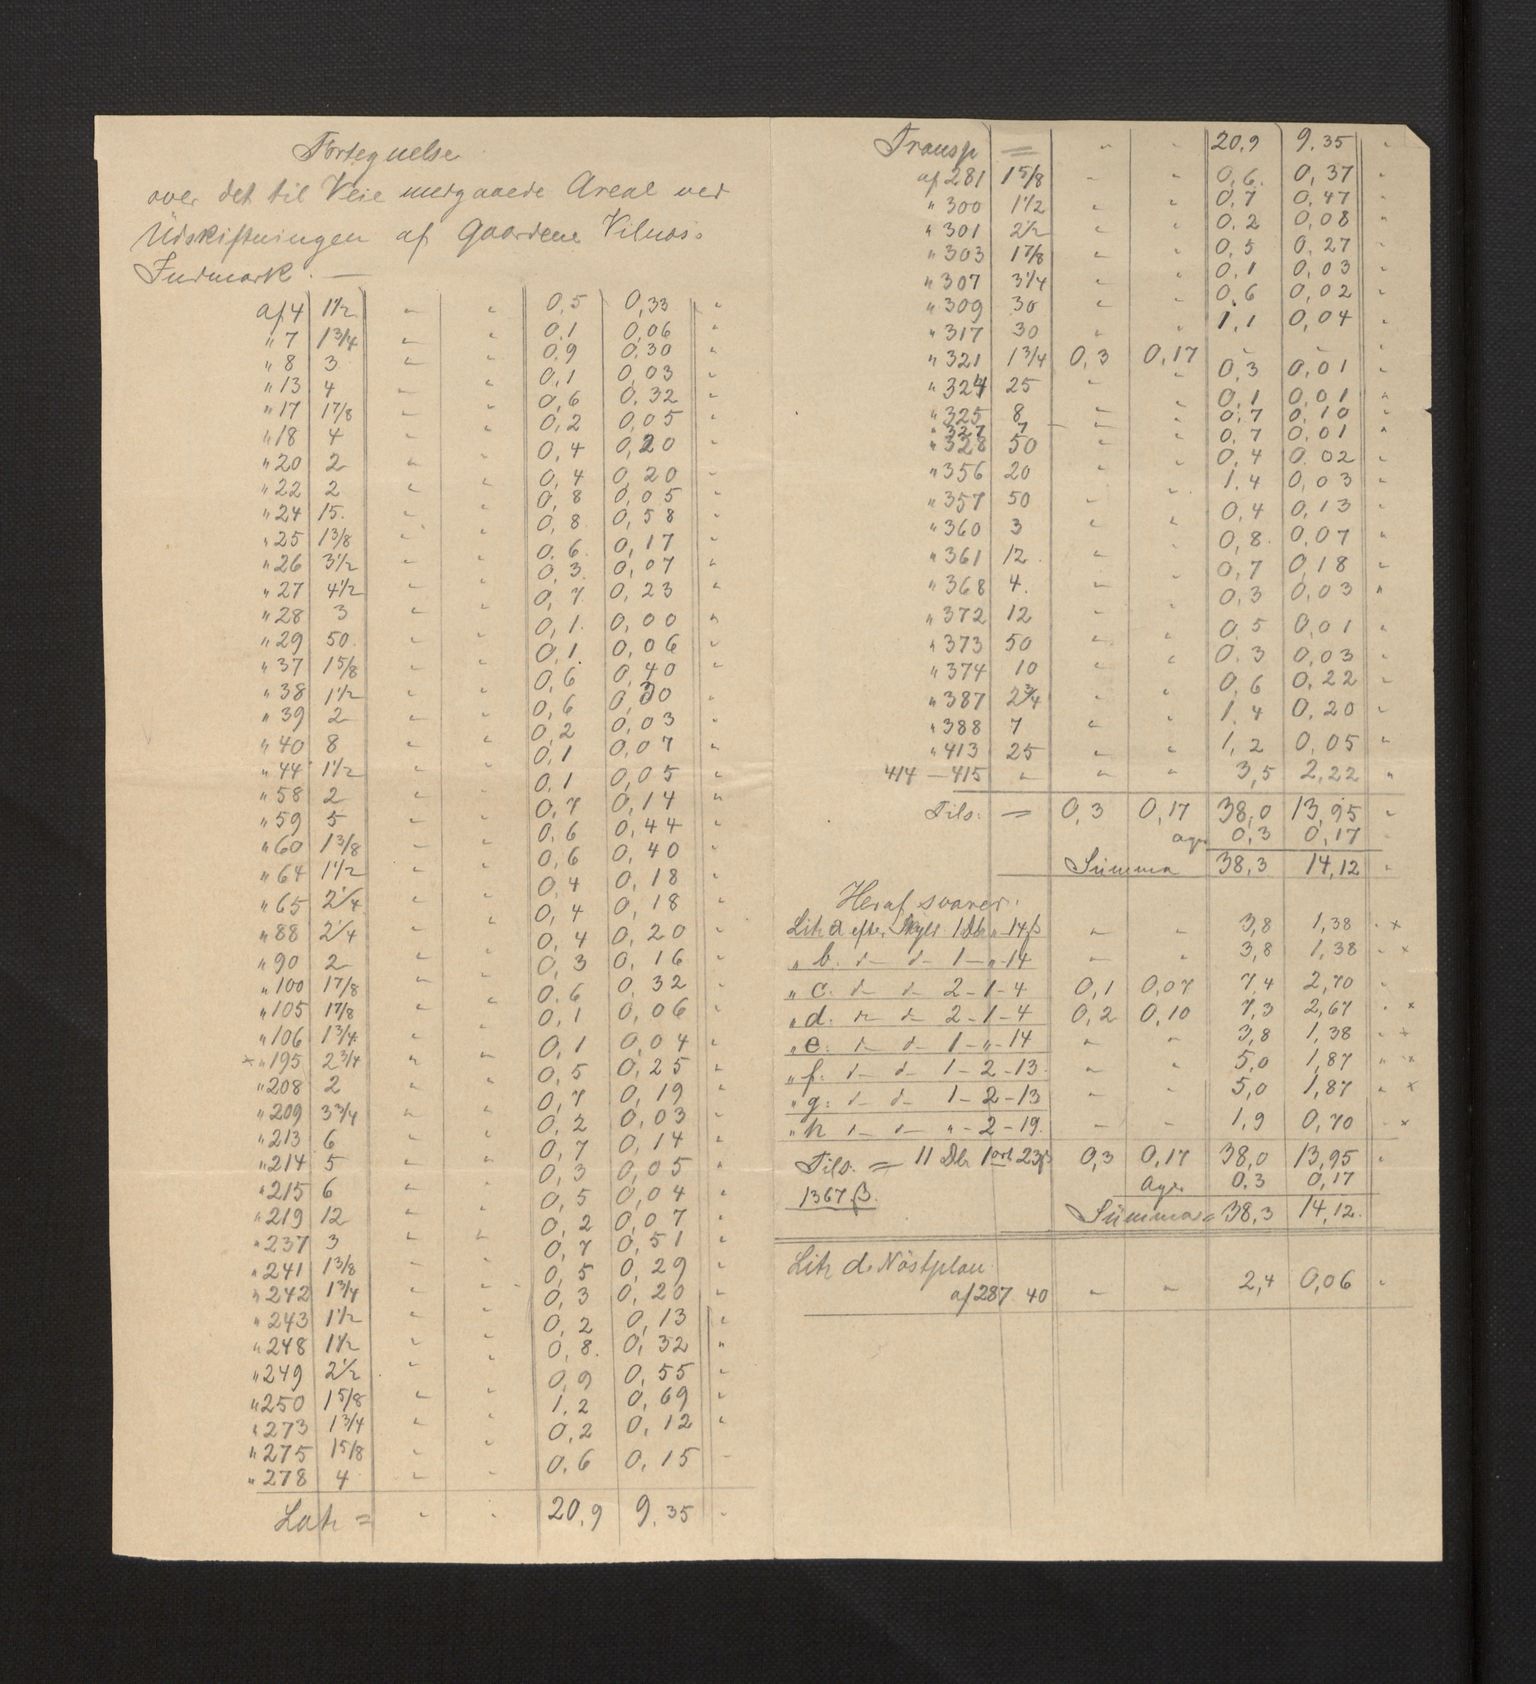 Fortegnelse
over det til Veie medgaaede Areal ved
Udskiftningen af Gaardene Vilnæs.
Indmark. —
af 4 1½ " " 0,5 0,33 "
" 7 1¾ " " 0,1 0,06 "
" 8 3 " " 0,9 0,30 "
" 13 4 " " 0,1 0,03 "
" 17 1⅞ " " 0,6 0,32 "
" 18 4 " " 0,2 0,05 "
" 20 2 " " 0,4 0,20 "
" 22 2 " " 0,4 0,20 "
" 24 15. " " 0,8 0,05 "
" 25 1⅜ " " 0,8 0,58 "
" 26 3½ " " 0,6 0,17 "
" 27 4½ " " 0,3 0,07 "
" 28 3 " " 0,7 0,23 "
" 29 50. " " 0,1 0,00 "
" 37 1⅝ " " 0,1 0,06 "
" 38 1½ " " 0,6 0,40 "
" 39 2 " " 0,6 0,30 "
" 40 8 " " 0,2 0,03 "
" 44 1½ " " 0,1 0,07 "
" 58 2 " " 0,1 0,05 "
" 59 5 " " 0,7 0,14 "
" 60 1⅜ " " 0,6 0,44 "
" 64 1½ " " 0,6 0,40 "
" 65 2¼ " " 0,4 0,18 "
" 88 2¼ " " 0,4 0,18 "
" 90 2 " " 0,4 0,20 "
" 100 1⅞ " " 0,3 0,16 "
" 105 1⅞ " " 0,6 0,32 "
" 106 1¾ " " 0,1 0,06 "
× " 195 2¾ " " 0,1 0,04 "
" 208 2 " " 0,5 0,25 "
" 209 3¾ " " 0,7 0,19 "
" 213 6 " " 0,2 0,03 "
" 214 5 " " 0,7 0,14 "
" 215 6 " " 0,3 0,05 "
" 219 12 " " 0,5 0,04 "
" 237 3 " " 0,2 0,07 "
" 241 1⅜ " " 0,7 0,51 "
" 242 1¾ " " 0,5 0,29 "
" 243 1½ " " 0,3 0,20 "
" 248 1½ " " 0,2 0,13 "
" 249 2½ " " 0,8 0,32 "
" 250 1⅝ " " 0,9 0,55 "
" 273 1¾ " " 1,2 0,69 "
" 275 1⅝ " " 0,2 0,12 "
" 278 4 " " 0,6 0,15 "
Latr = " " 20,9 9,35 "
Transp = " " 20,9 9,35 "
af 281 1⅝ " " 0,6 0,37 "
" 300 1½ " " 0,7 0,47 "
" 301 2½ " " 0,2 0,08 "
" 303 1⅞ " " 0,5 0,27 "
" 307 3¼ " " 0,1 0,03 "
" 309 30 " " 0,6 0,02 "
" 317 30 " " 1,1 0,04 "
" 321 1¾ 0,3 0,17 " " "
" 324 25 " " 0,3 0,01 "
" 325 8 " " 0,1 0,01 "
" 327 7 " " 0,7 0,10 "
" 328 50 " " 0,7 0,01 "
" 356 20 " " 0,4 0,02 "
" 357 50 " " 1,4 0,03 "
" 360 3 " " 0,4 0,13 "
" 361 12 " " 0,8 0,07 "
" 368 4. " " 0,7 0,18 "
" 372 12 " " 0,3 0,03 "
" 373 50 " " 0,5 0,01 "
" 374 10 " " 0,3 0,03 "
" 387 2¾ " " 0,6 0,22 "
" 388 7 " " 1,4 0,20 "
" 413 25 " " 1,2 0,05 "
414 — 415 " " " 3,5 2,22 "
Tils. = 0,3 0,17 38,0 13,95 "
ager 0,3 0,17
Summa 38,3 14,12 "
Heraf svarer.
Litr a efter Skyld 1 Dlr " 14 β " " 3,8 1,38 " ×
" b. d— d— 1 — " — 14 " " 3,8 1,38 " ×
" c. d— d— 2 - 1 - 4 0,1 0,07 7,4 2,70 "
" d. d— d— 2 - 1 - 4 0,2 0,10 7,3 2,67 " ×
" e. d— d— 1 - " - 14 " " 3,8 1,38 " ×
" f. d— d— 1 - 2 - 13. " " 5,0 1,87 " ×
" g. d— d— 1 - 2 - 13 " " 5,0 1,87 " ×
" h d— d— " - 2 - 19. " " 1,9 0,70 " ×
Tils. = 11 Dlr 1 ort 23 β 0,3 0,17 38,0 13,95 "
1367 β. ager 0,3 0,17
Summa = 38,3 14,12.
Litr d. Nöstplan
af 287 40 " " 2,4 0,06 "